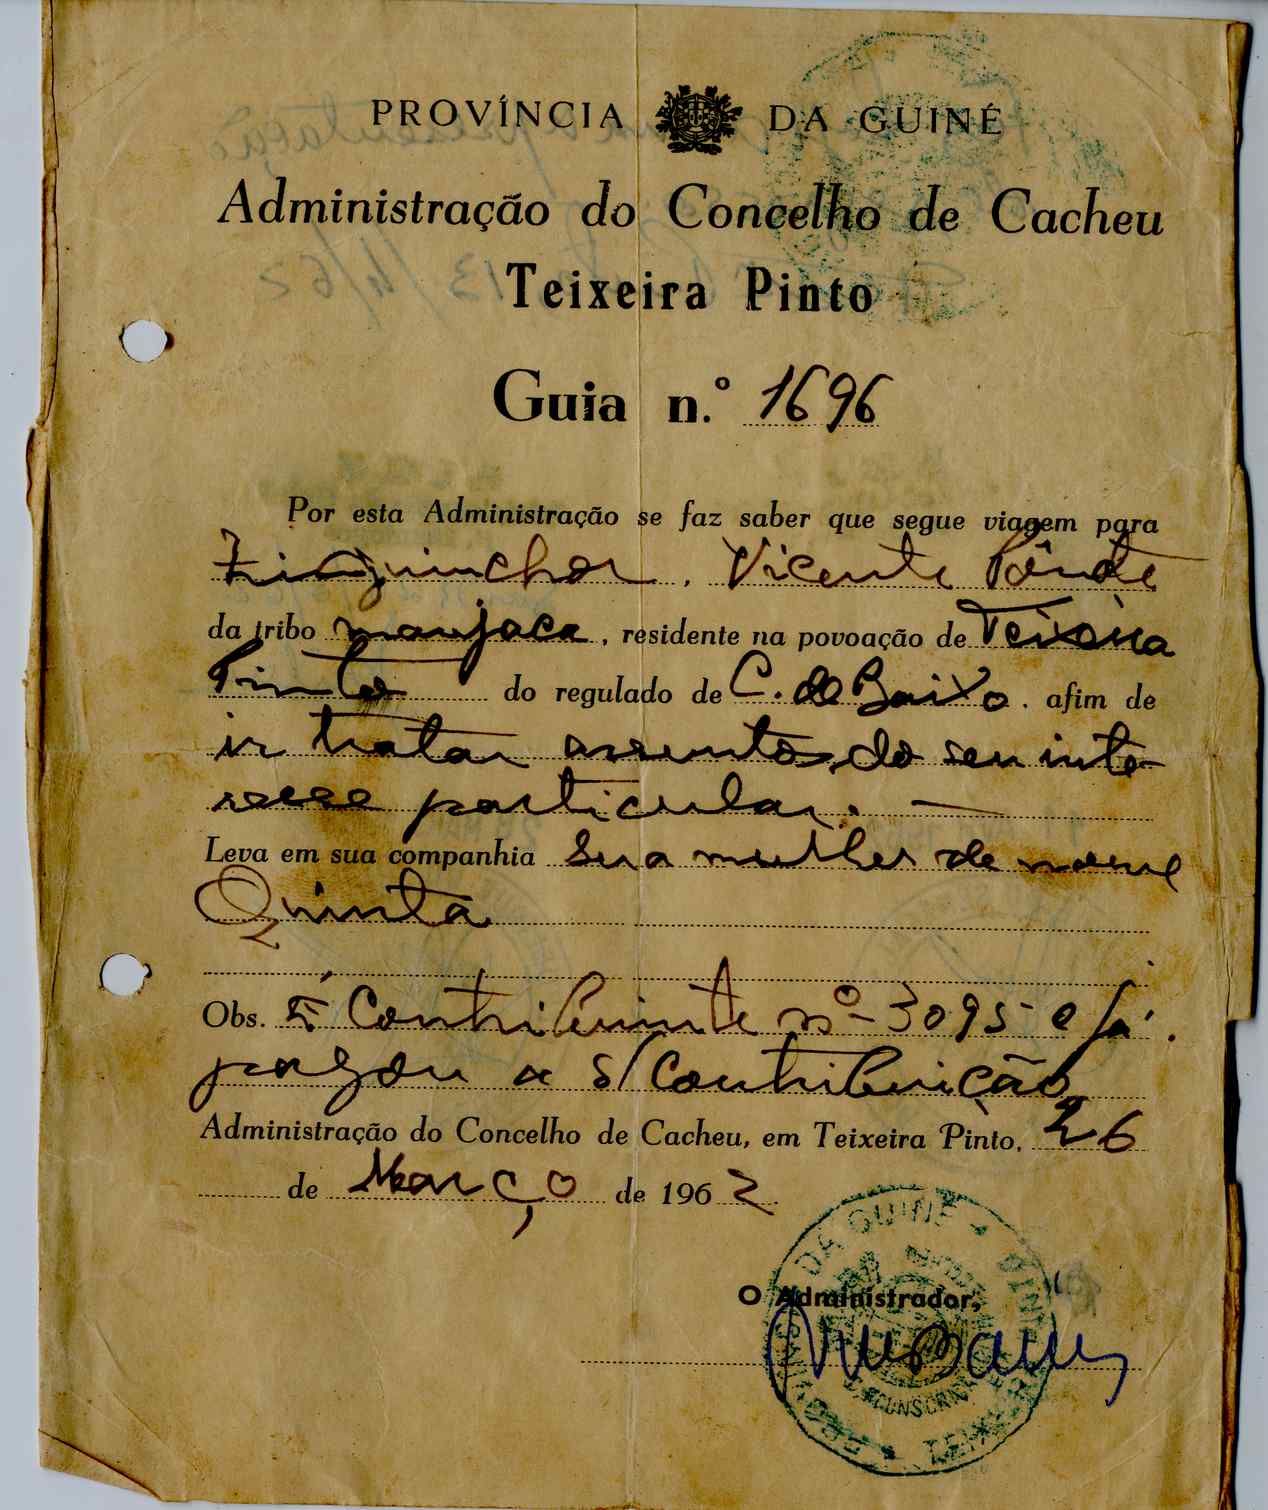 PROVÍNCIA DA GUINÉ
Administração do Concelho de Cacheu
Teixeira Pinto
Guia n.º 1696
Por esta Administração se faz saber que segue viagem para
Ziguinchor, Vicente
da tribo manjaca, residente na povoação de Teixeira
Pinto do regulado de C. de Baixo. afim de
ir tratar assuntos do seu inte-
resse particular. —
Leva em sua companhia sua mulher de nome
Quinta
Obs. É Contribuinte nº 3095 e já
pagou a s/ Contribuição
Administração do Concelho de Cacheu, em Teixeira Pinto, 26
de Março de 1962.
O Administrador,
DA GUINÉ